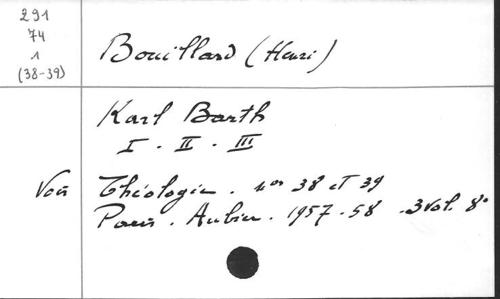 291
74
1
(38-39)
Bouillard (Henri)
Karl Barth
I - II - III
Voir Théologie. nos 38 et 39
Paris. Aubier. 1957-58 - 3 vol. 8°